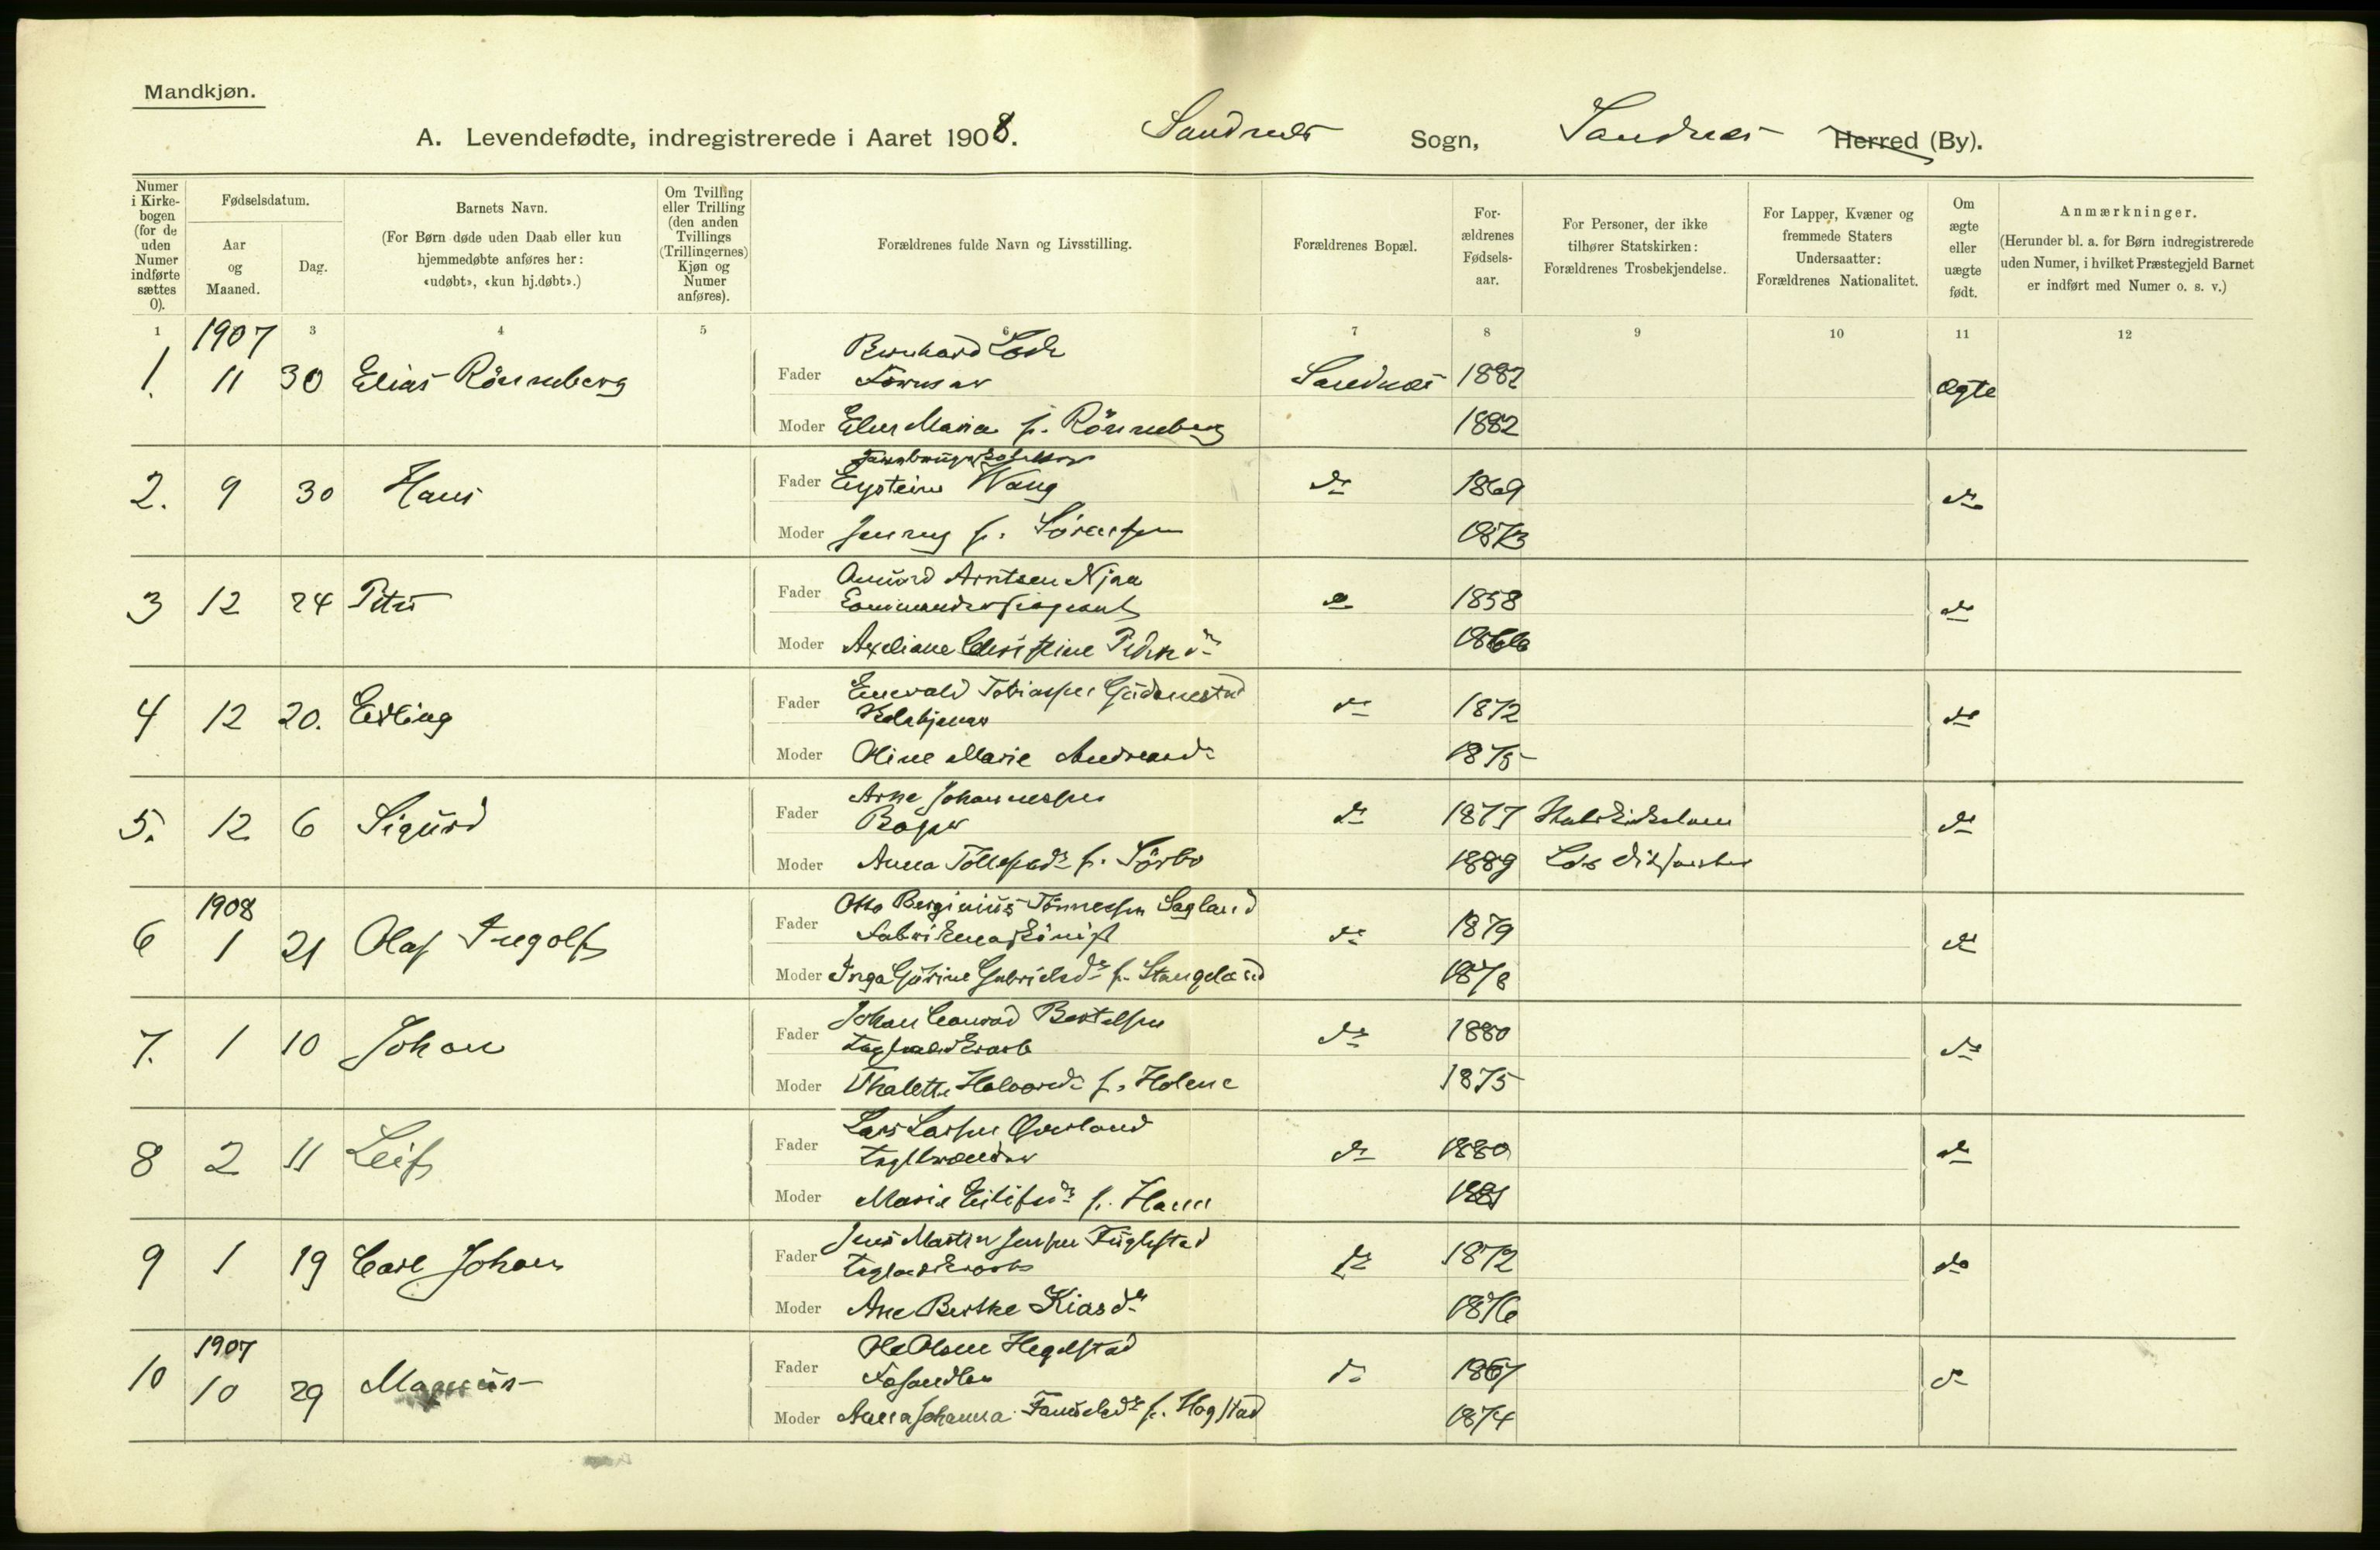 Mandkjøn.
A. Levendefødte, indregistrerede i Aaret 1908. Sandnes Sogn, Sandnes Herred (By).
Numer i Kirke-bogen (for de uden Numer indførte sættes 0).
Fødselsdatum.
Aar og Maaned.
Dag.
Barnets Navn.
(For Børn døde uden Daab eller kun hjemmedøbte anføres her: «udøbt», «kun hj.døbt».)
Om Tvilling eller Trilling (den anden Tvillings (Trillingernes) Kjøn og Numer anføres).
Forældrenes fulde Navn og Livsstilling.
Forældrenes Bopæl.
For-ældrenes Fødsels-aar.
For Personer, der ikke tilhører Statskirken: Forældrenes Trosbekjendelse.
For Lapper, Kvæner og fremmede Staters Undersaatter: Forældrenes Nationalitet.
Om ægte eller uægte født.
Anmærkninger.
(Herunder bl. a. for Børn indregistrerede uden Numer, i hvilket Præstegjeld Barnet er indført med Numer o. s. v.)
1 3 4 5 6 7 8 9 10 11 12
1907
1. 11 30 Elias Rönneberg
Bernhard
Fader Former Sandnes 1882 ægte
Moder Maria f. Rönneberg 1882
2. 9 30 Hans
Fader Eystein Wang do 1869 do
Moder Jenny f. Sörensen 1873
3 12 24
Arntsen Njaa
Fader do 1858 do
Moder Axeliane Christine 1866
4 12 20. Erling
Fader Tobiassen do 1872 do
Moder Oline Marie Andreasdr 1875
5. 12 6 Sigurd
Arne Johannessen
Fader do 1877 do
Moder Anna f. Sörbo 1889
1908
6 1 21 Olaf Ingolf
Otto Berginius Tönnessen Sagland
Fader do 1879 do
Moder Inga Gurine Gabrielsdr f. Stangeland 1878
7. 1 10 Johan
Johan Conrad Bertelsen
Fader do 1880 do
Moder Thalette Halvorsdr f. Holene 1875
8 2 11 Leif
Lars Larsen
Fader do 1880 do
Moder Marie f. Hana 1881
9 1 19 Carl Johan
Jens Martin Jensen Fuglestad
Fader do 1872 do
Moder Ane Berthe 1876
1907
10 10 29 Magnus
Ole Olsen Hegelstad
Fader do 1867 do
Moder Anna Johanna f. Hogstad 1874